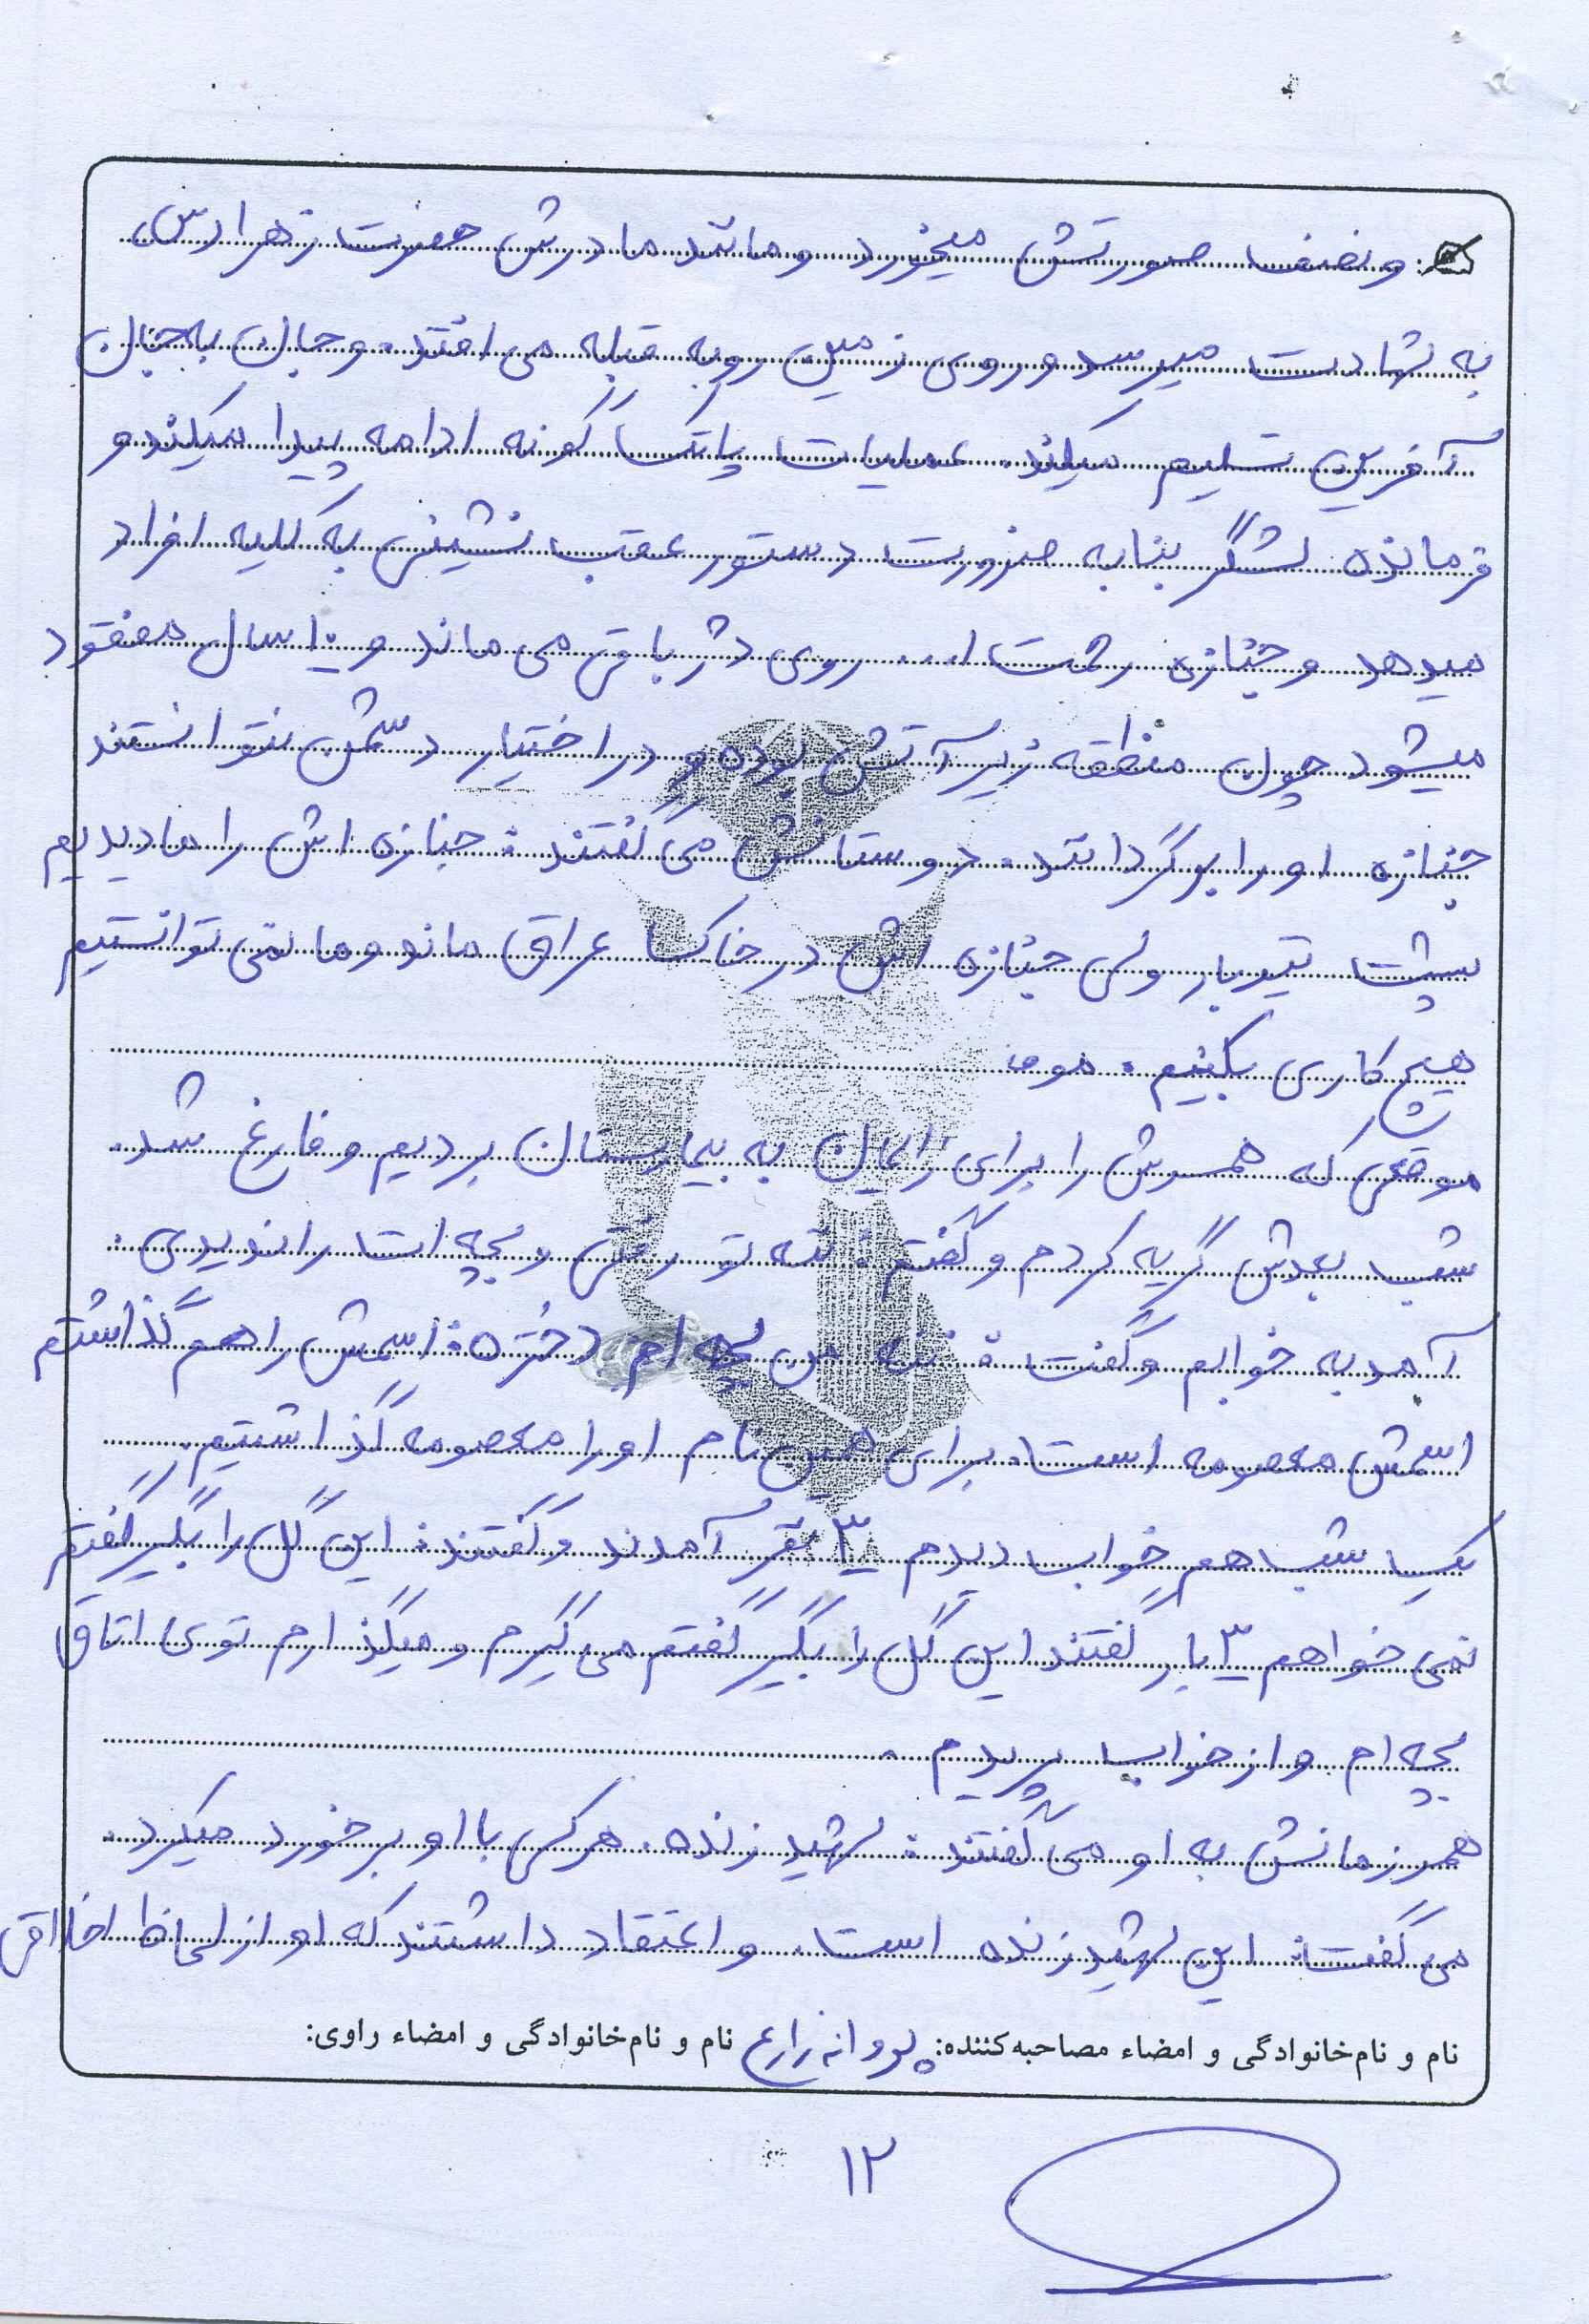 و نصف صورتش میخورد و مانند مادرش حضرت زهرا (س)
به شهادت میرسد و روی زمین رو به قبله می افتد. و جان به جان
آفرین تسلیم میکند. عملیات پاتک گونه ادامه پیدا میکند و
فرمانده لشگر بنا به ضرورت دستور عقب نشینی به کلیه افراد
میدهد و جنازه رحمت ا... روی دژ باقی می ماند و ۱۰ سال مفقود
میشود چون منطقه زیر آتش بوده و در اختیار دشمن نتوانستند
جنازه او را برگردانند. دوستانش می گفتند: جنازه اش را ما دیدیم
پشت تیربار ولی جنازه اش در خاک عراق ماند و ما نمی توانستیم
هیچ کاری بکنیم. موت
موقعی که همسرش را برای زایمان به بیمارستان بردیم و فارغ شد.
شب بعدش گریه کردم و گفتم: ننه تو رفتی و بچه ات را ندیدی.
آمد به خوابم و گفت: ننه من بچه ام دختره: اسمش را هم گذاشتم
اسمش معصومه است. برای همین نام او را معصومه گذاشتیم.
یک شب هم خواب دیدم ۳ نفر آمدند و گفتند: این گل را بگیر گفتم
نمی خواهم ۳ بار گفتند این گل را بگیر گفتم می گیرم و میگذارم توی اتاق
بچه ام و از خواب پریدم.
همرزمانش به او می گفتند: شهید زنده. هر کس با او برخورد میکرد.
می گفت: این شهید زنده است. و اعتقاد داشتند که او از لحاظ اخلاقی
نام و نام‌خانوادگی و امضاء مصاحبه‌کننده: پروانه زارع نام و نام‌خانوادگی و امضاء راوی:
۱۲